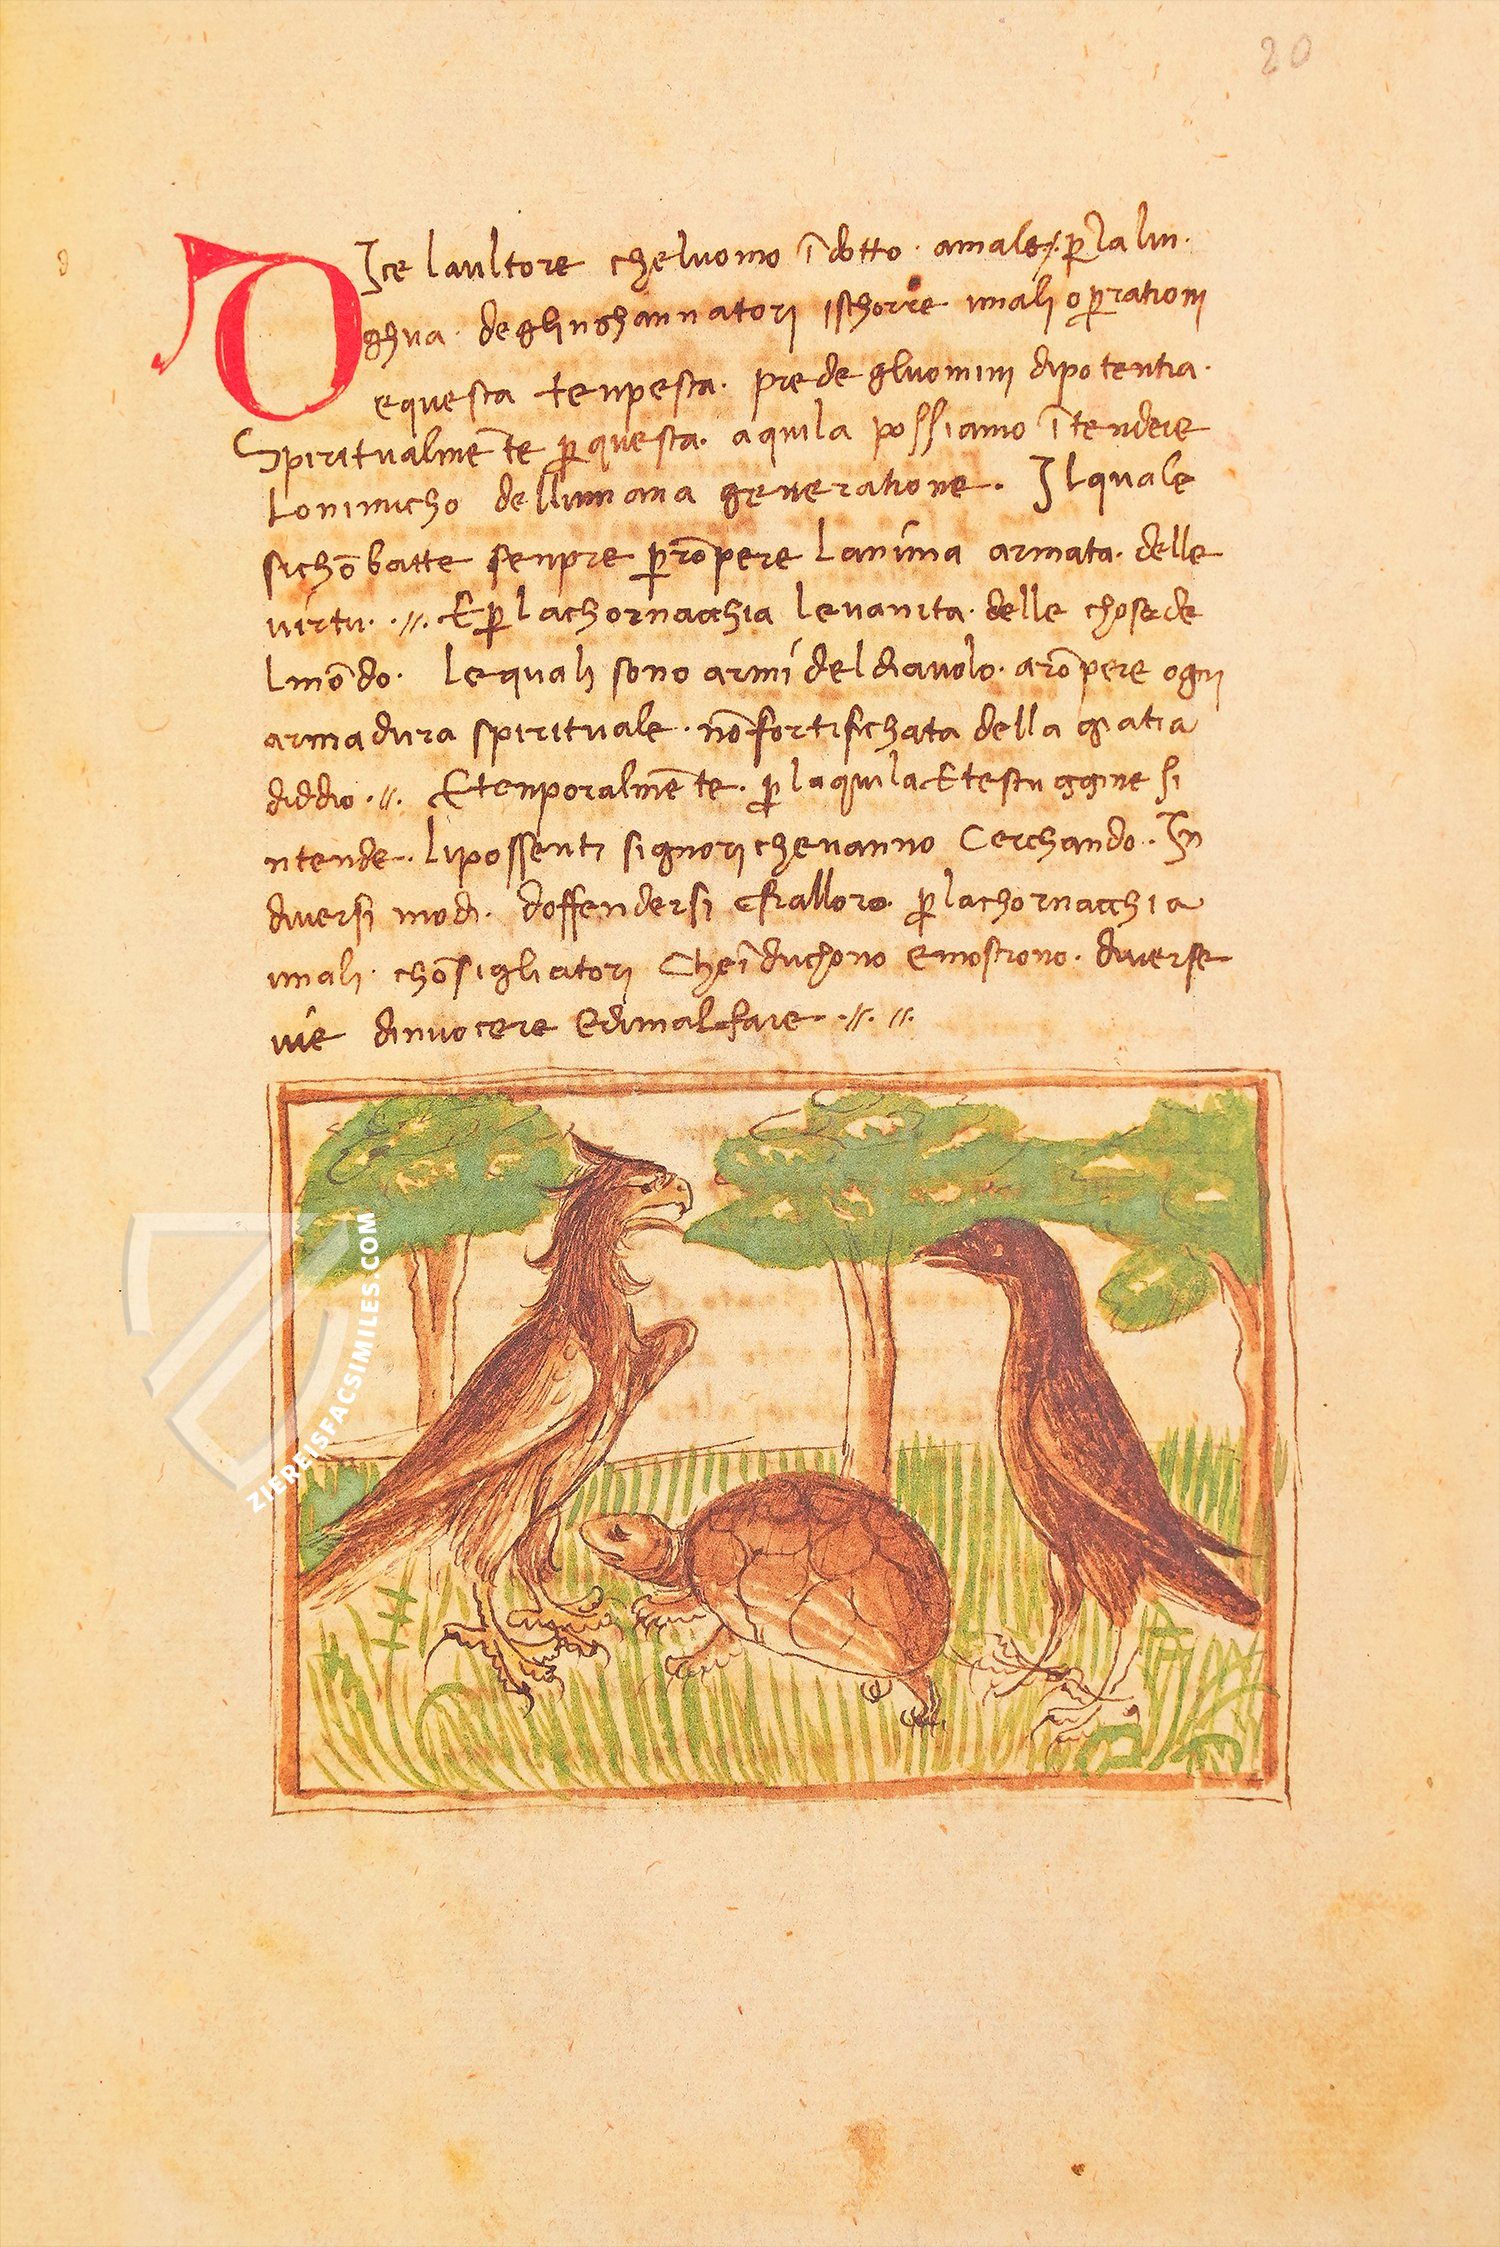 20
DIce laultore cheluomo ī dotto · amale · p̲ la lin·
ghua · deglinghannatori ischorre imali op̲rationi
equesta tenpesta· prede gluomini dipotentia·
Spiritualmēte p̲questa· aquila possiamo ītendere
Lonimicho dellumana generatione · Ilquale
sichōbatte senpre p̲rōpere Lanima armata· delle
virtu· ·//· E p̲ lachornacchia levanita· delle chosede
lmōdo· Lequali sono armi del diavolo· arōpere ogni
armadura spirituale · nōfortifichata della gratia
diddio ·//· Etenporalmēte· p̲ laquila Etestuggine si
ntende· Lipossenti signori chevanno Cerchando · In
diversi modi· doffendersi Efralloro· p̲ lachornacchia
imali · chōsigliatori Cheīduchono Emostrono· diverse
vie dinuocere Edimalfare · ·//· //·
ZIEREISFACSIMILES.COM